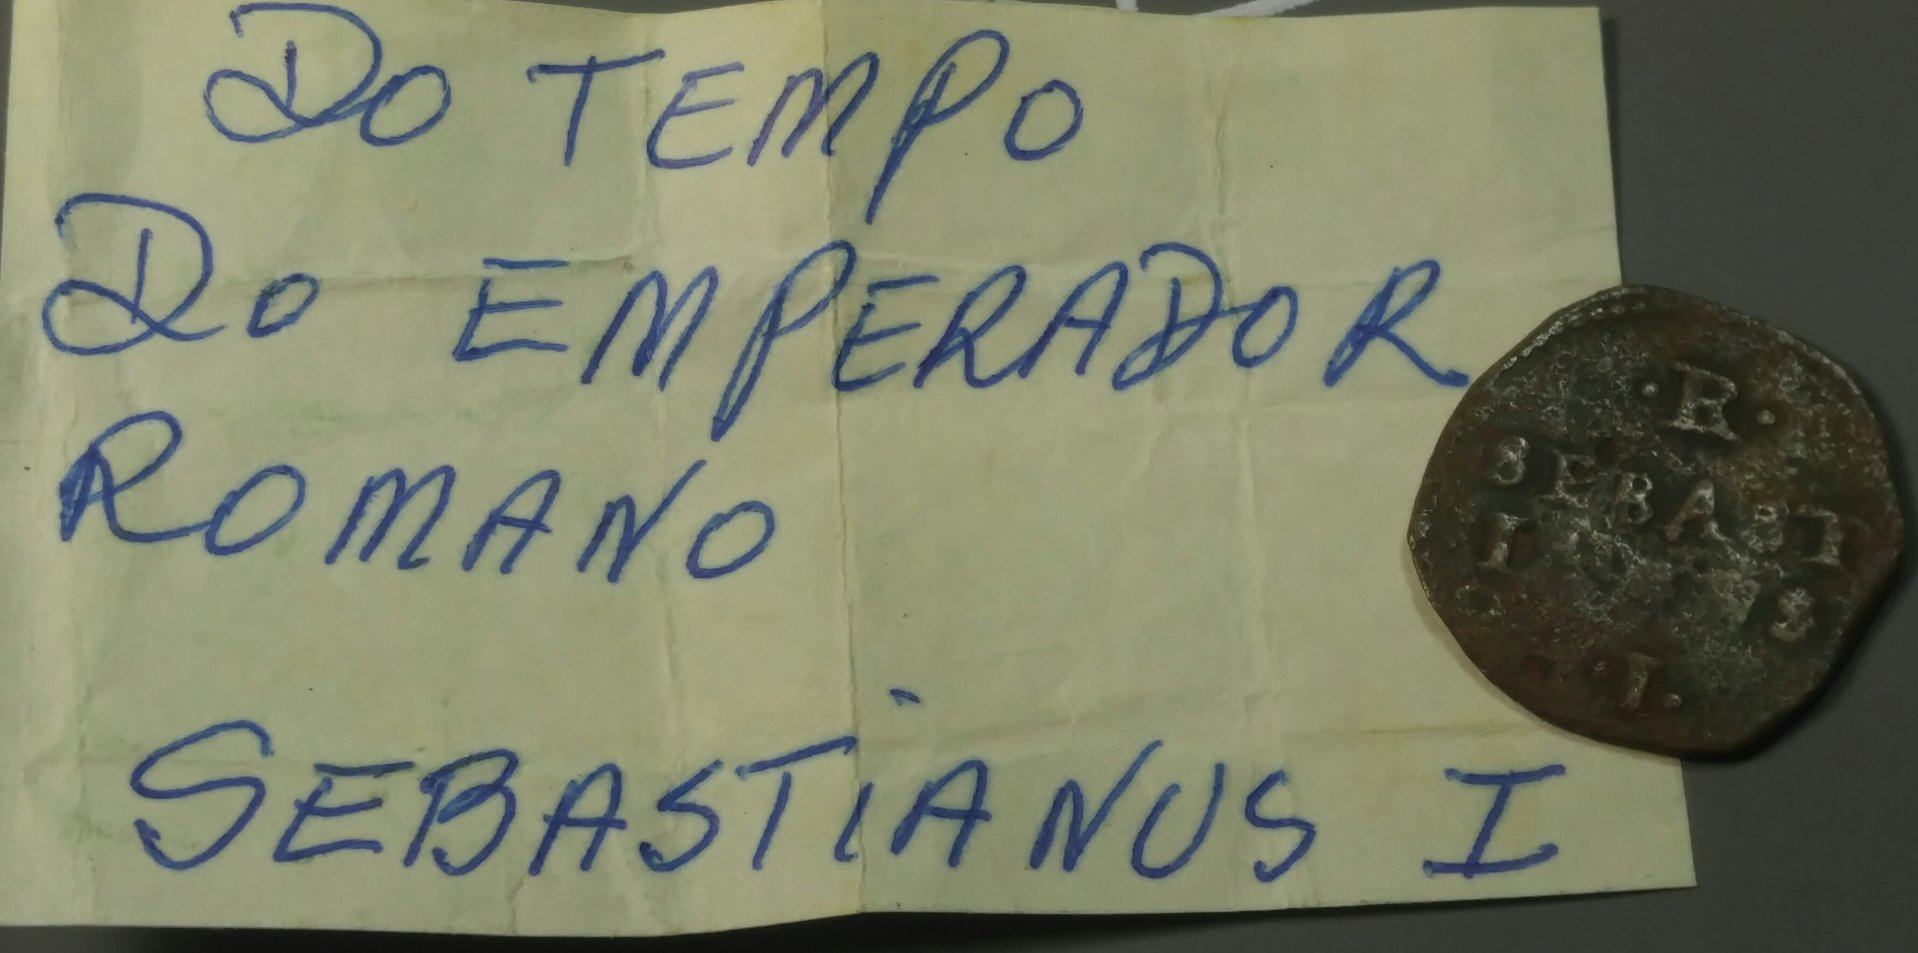 DO TEMPO
DO EMPERADOR
ROMANO
SEBASTIANUS I
·R·
SEBAST
I S
I.